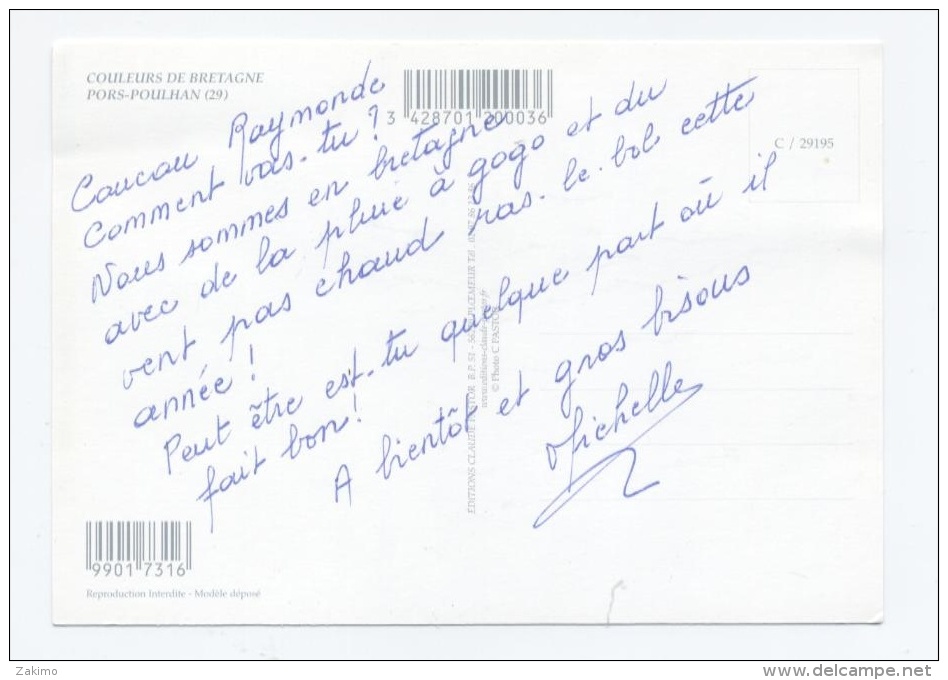 COULEURS DE BRETAGNE
PORS-POULHAN (29)
3 428701 200036
C / 29195
Coucou Raymonde
Comment vas-tu ?
Nous sommes en bretagne
avec de la pluie à gogo et du
vent pas chaud ras-le-bol cette
année !
Peut être est-tu quelque part où il
fait bon !
A bientôt et gros bisous
Michelle
EDITIONS CLAUDE PASTOR B.P. 51 - PLOEMEUR Tél
© Photo C PASTOR
99017316
Reproduction Interdite - Modèle déposé
Zakimo
www.delcampe.net